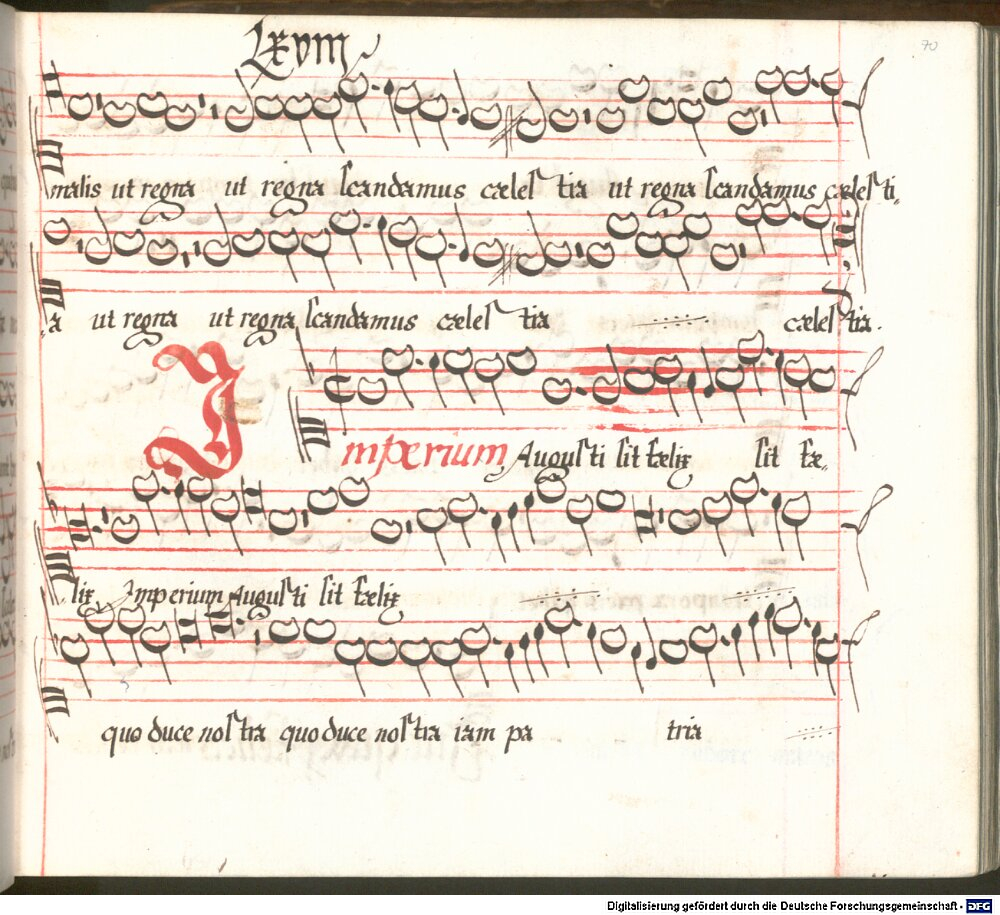 Lxviii
70
malis ut regna ut regna scandamus cæles tia ut regna scandamus cæles ti„
„a ut regna ut regna scandamus cæles tia cæles tia.
Imperium Augusti sit fœlix sit fœ„
„lix Imperium Augusti sit fœlix
quo duce nostra quo duce nostra iam pa tria
Digitalisierung gefördert durch die Deutsche Forschungsgemeinschaft - DFG